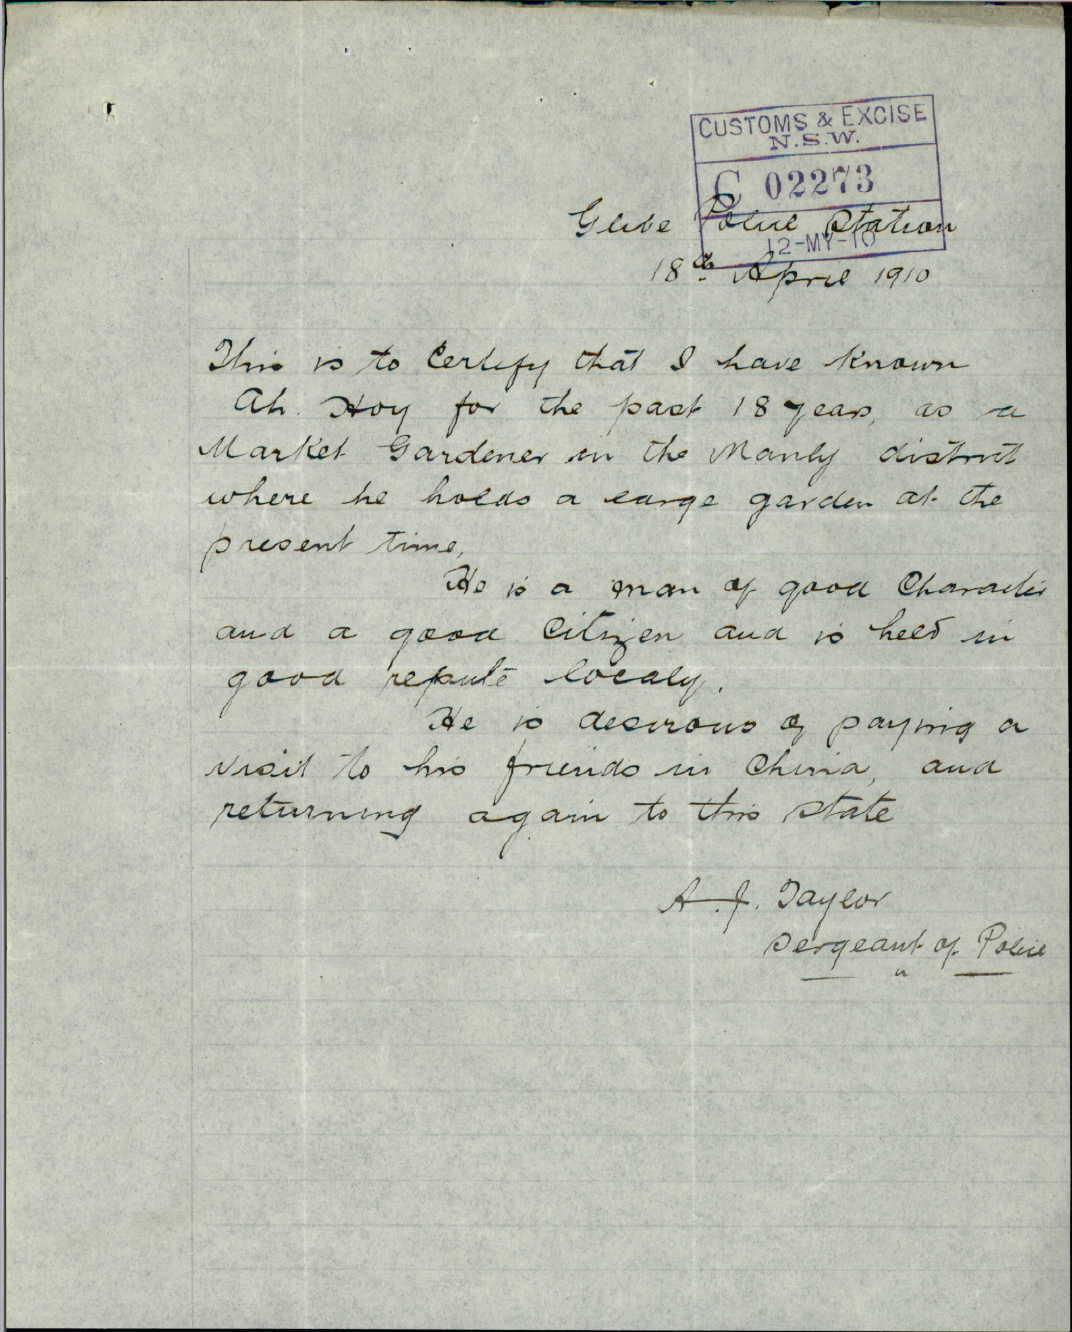 CUSTOMS & EXCISE
N.S.W.
C 02273
12-MY-10
Glebe Police Station
18th April 1910
This is to Certify that I have known
Ah. Hoy for the past 18 years, as a
Market Gardener in the Manly district
where he holds a large garden at the
present time,
He is a man of good Character
and a good Citizen and is held in
good repute localy.
He is desirous of paying a
visit to his friends in China, and
returning again to this state
A. J. Taylor
Sergeant of Police